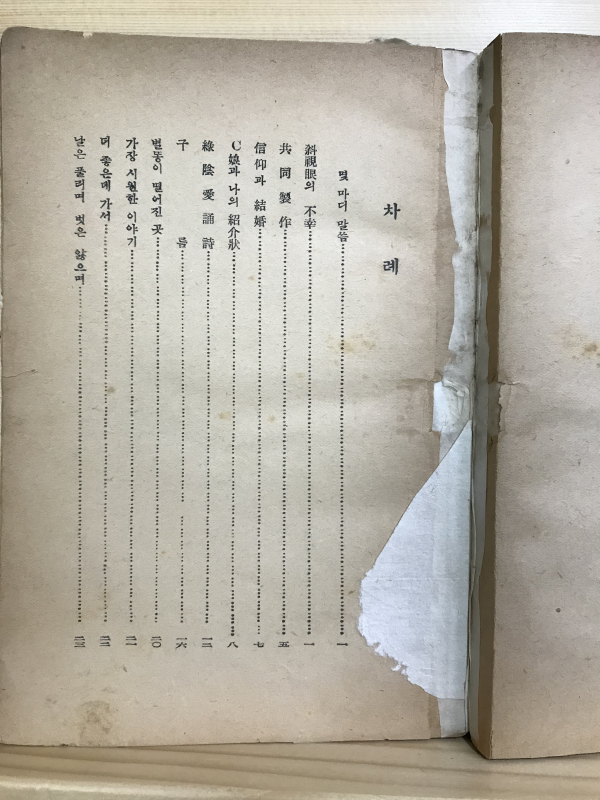 차례
몇 마디 말씀 一
斜視眼의 不幸 一
共同製作 五
信仰과 結婚 七
C孃과 나의 紹介狀 八
綠陰愛誦詩 一二
구름 一六
별똥이 떨어진 곳 二〇
가장 시원한 이야기 二一
더 좋은데 가서 二二
날은 풀리며 벗은 앓으며 二三